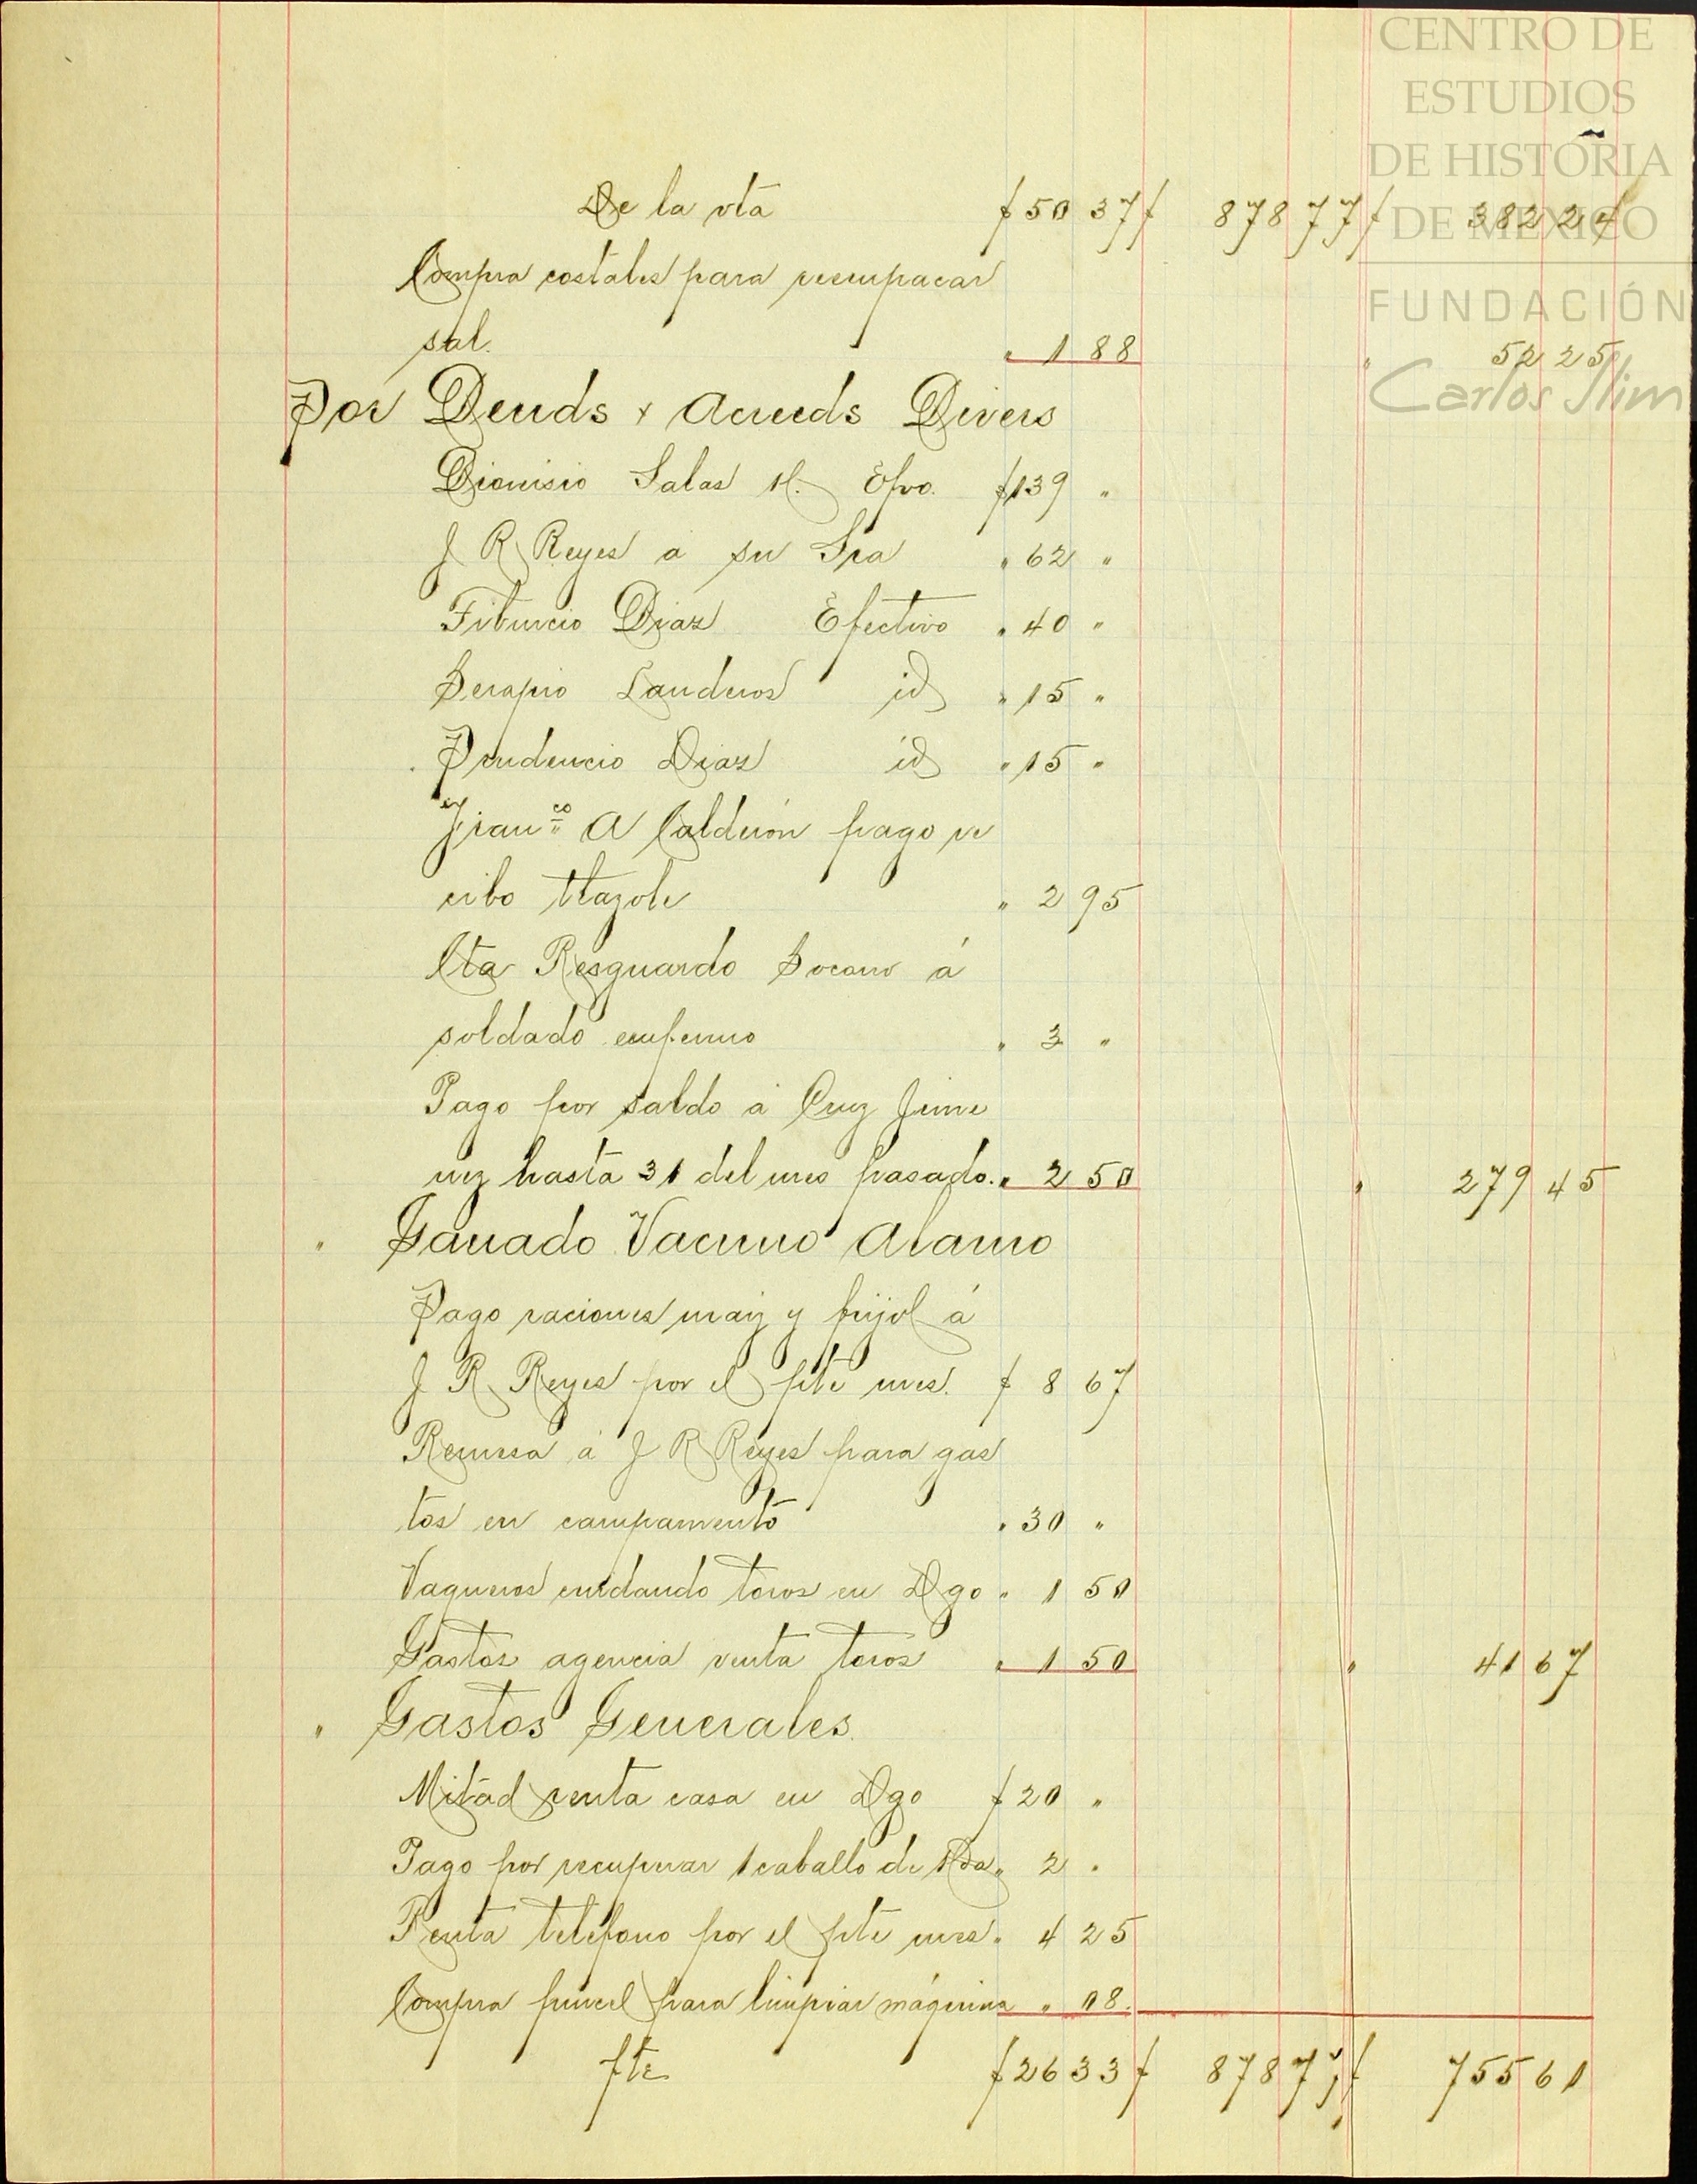 CENTRO DE
ESTUDIOS
DE HISTORIA
DE MÉXICO
FUNDACIÓN
Carlos Slim
De la vta $ 50 37 $ 878 77 $ 382 24
Compra costales para reempacar
sal. " 1 88 " 52 25
Por Deuds y Acreeds Divers
Dionisio Salas H. Efvo. $ 139 "
J R Reyes a su Sra " 62 "
Tiburcio Diaz Efectivo " 40 "
Serapio Landeros id " 15 "
Prudencio Diaz id " 15 "
Franco A Calderón pago re
cibo tlazole " 2 95
Cta Resguardo Socorro á
soldado enfermo " 3 "
Pago por saldo á Cruz Jime
nez hasta 31 del mes pasado. " 2 50 " 279 45
" Ganado Vacuno Alamo
Pago raciones maiz y frijol á
J R Reyes por el pte mes. $ 8 67
Remesa á J R Reyes para gas
tos en campamento " 30 "
Vaqueros cuidando toros en Dgo " 1 50
Gastos agencia venta toros " 1 50 " 41 67
" Gastos Generales.
Mitad renta casa en Dgo $ 20 "
Pago por recuperar 1 caballo de Hda " 2 "
Renta teléfono por el pte mes " 4 25
Compra pincel para limpiar máquina " 08.
fte $ 26 33 $ 878 77 $ 755 61